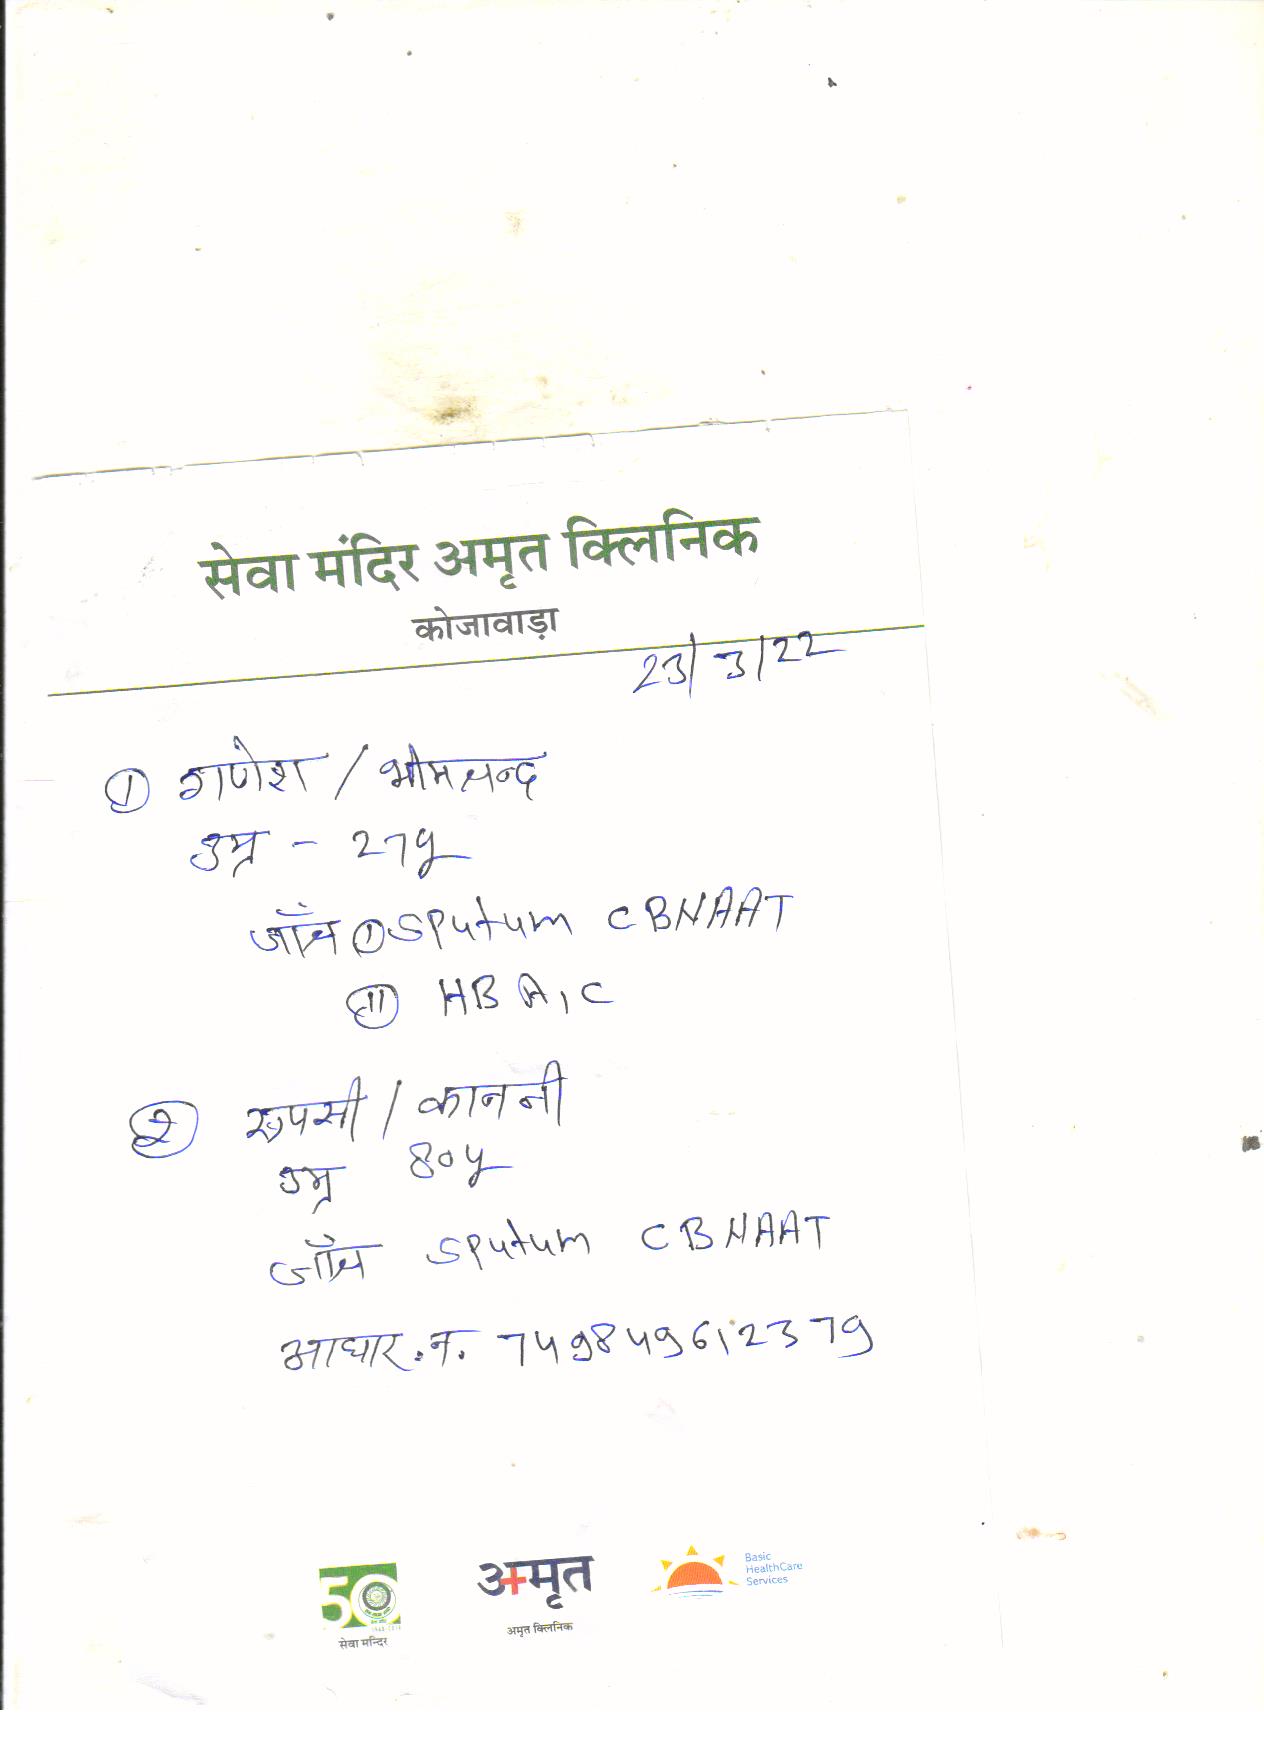 सेवा मंदिर अमृत क्लिनिक
कोजावाड़ा
23/3/22
① गणेश / भीमचन्द
उम्र - 27y
जाँच ① Sputum CBNAAT
⑪ HBA1C
② रुपसी / कानजी
उम्र 80y
जाँच Sputum CBNAAT
आधार.न. 749849612379
50
सेवा मन्दिर
अमृत
अमृत क्लिनिक
Basic
HealthCare
Services